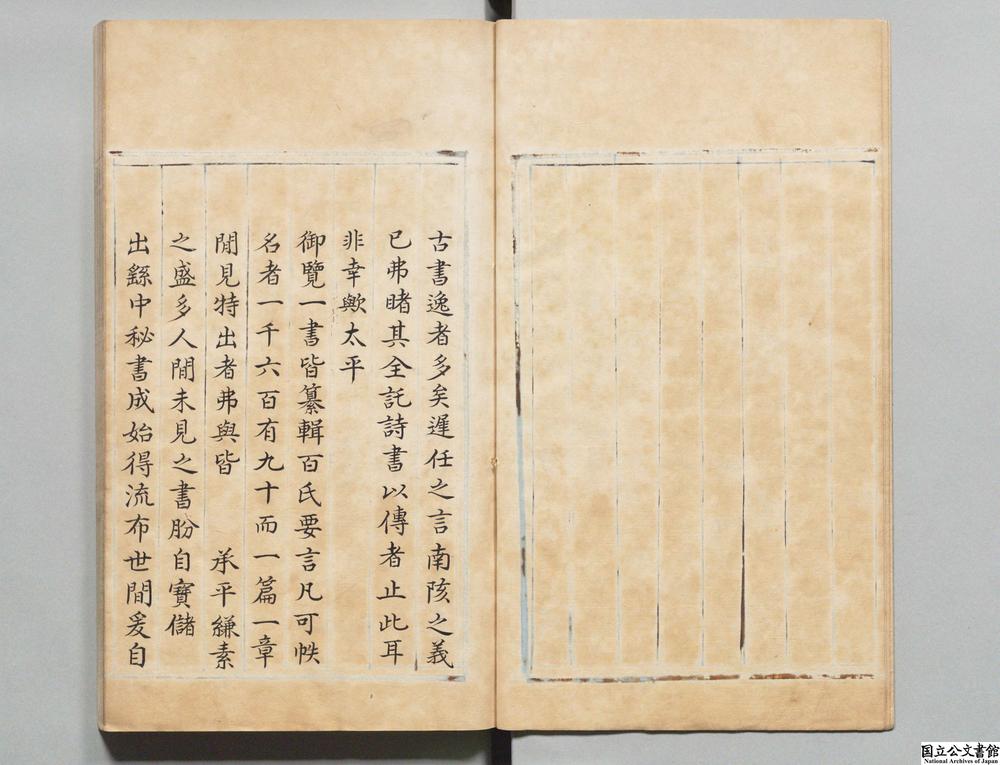 古書逸者多矣遲任之言南陔之義
已弗睹其全託詩書以傳者止此耳
非幸歟太平
御覽一書皆纂輯百氏要言凡可帙
名者一千六百有九十而一篇一章
閒見特出者弗與皆　承平縑素
之盛多人間未見之書肦自寶儲
出繇中秘書成始得流布世間爰自
国立公文書館
National Archives of Japan